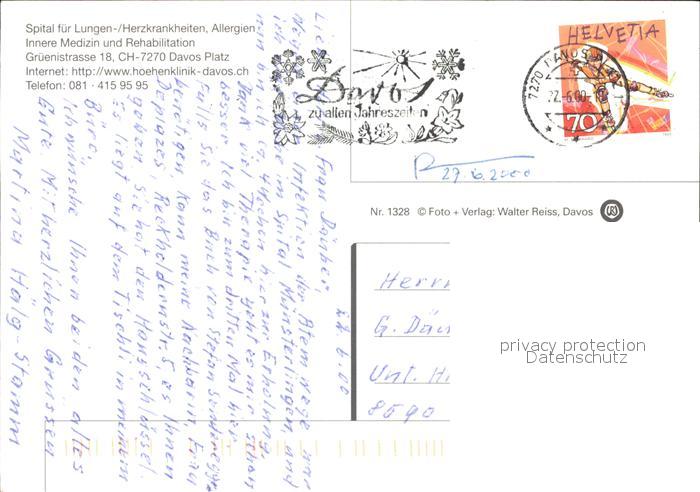 Spital für Lungen-/Herzkrankheiten, Allergien
Innere Medizin und Rehabilitation
Grüenistrasse 18, CH-7270 Davos Platz
Internet: http://www.hoehenklinik-davos.ch
Telefon: 081 · 415 95 95
Davos
zu allen Jahreszeiten
7270 DAVOS
22.-6.00-
HELVETIA
70
27.6.2000
Nr. 1328 © Foto + Verlag: Walter Reiss, Davos
22.6.00
Liebe Frau
Infektion der Atemwege war
ich im Spital Münsterlingen, und
nun bin ich ca. 4 Wochen hier zur Erholung.
Dank viel Therapie geht es mir schon
besser. Ich bin zum dritten Mal hier.
Falls Sie das Buch von Stefan
kann meine Nachbarin, Frau
es Ihnen
geben. Sie hat den Hausschlüssel.
Es liegt auf dem Tischli in meinem
Büro.
Ich wünsche Ihnen beiden alles
Gute. Mit herzlichen Grüssen
Martina Hälg-Stamm
Herrn
G.
Unt.
8590
privacy protection
Datenschutz